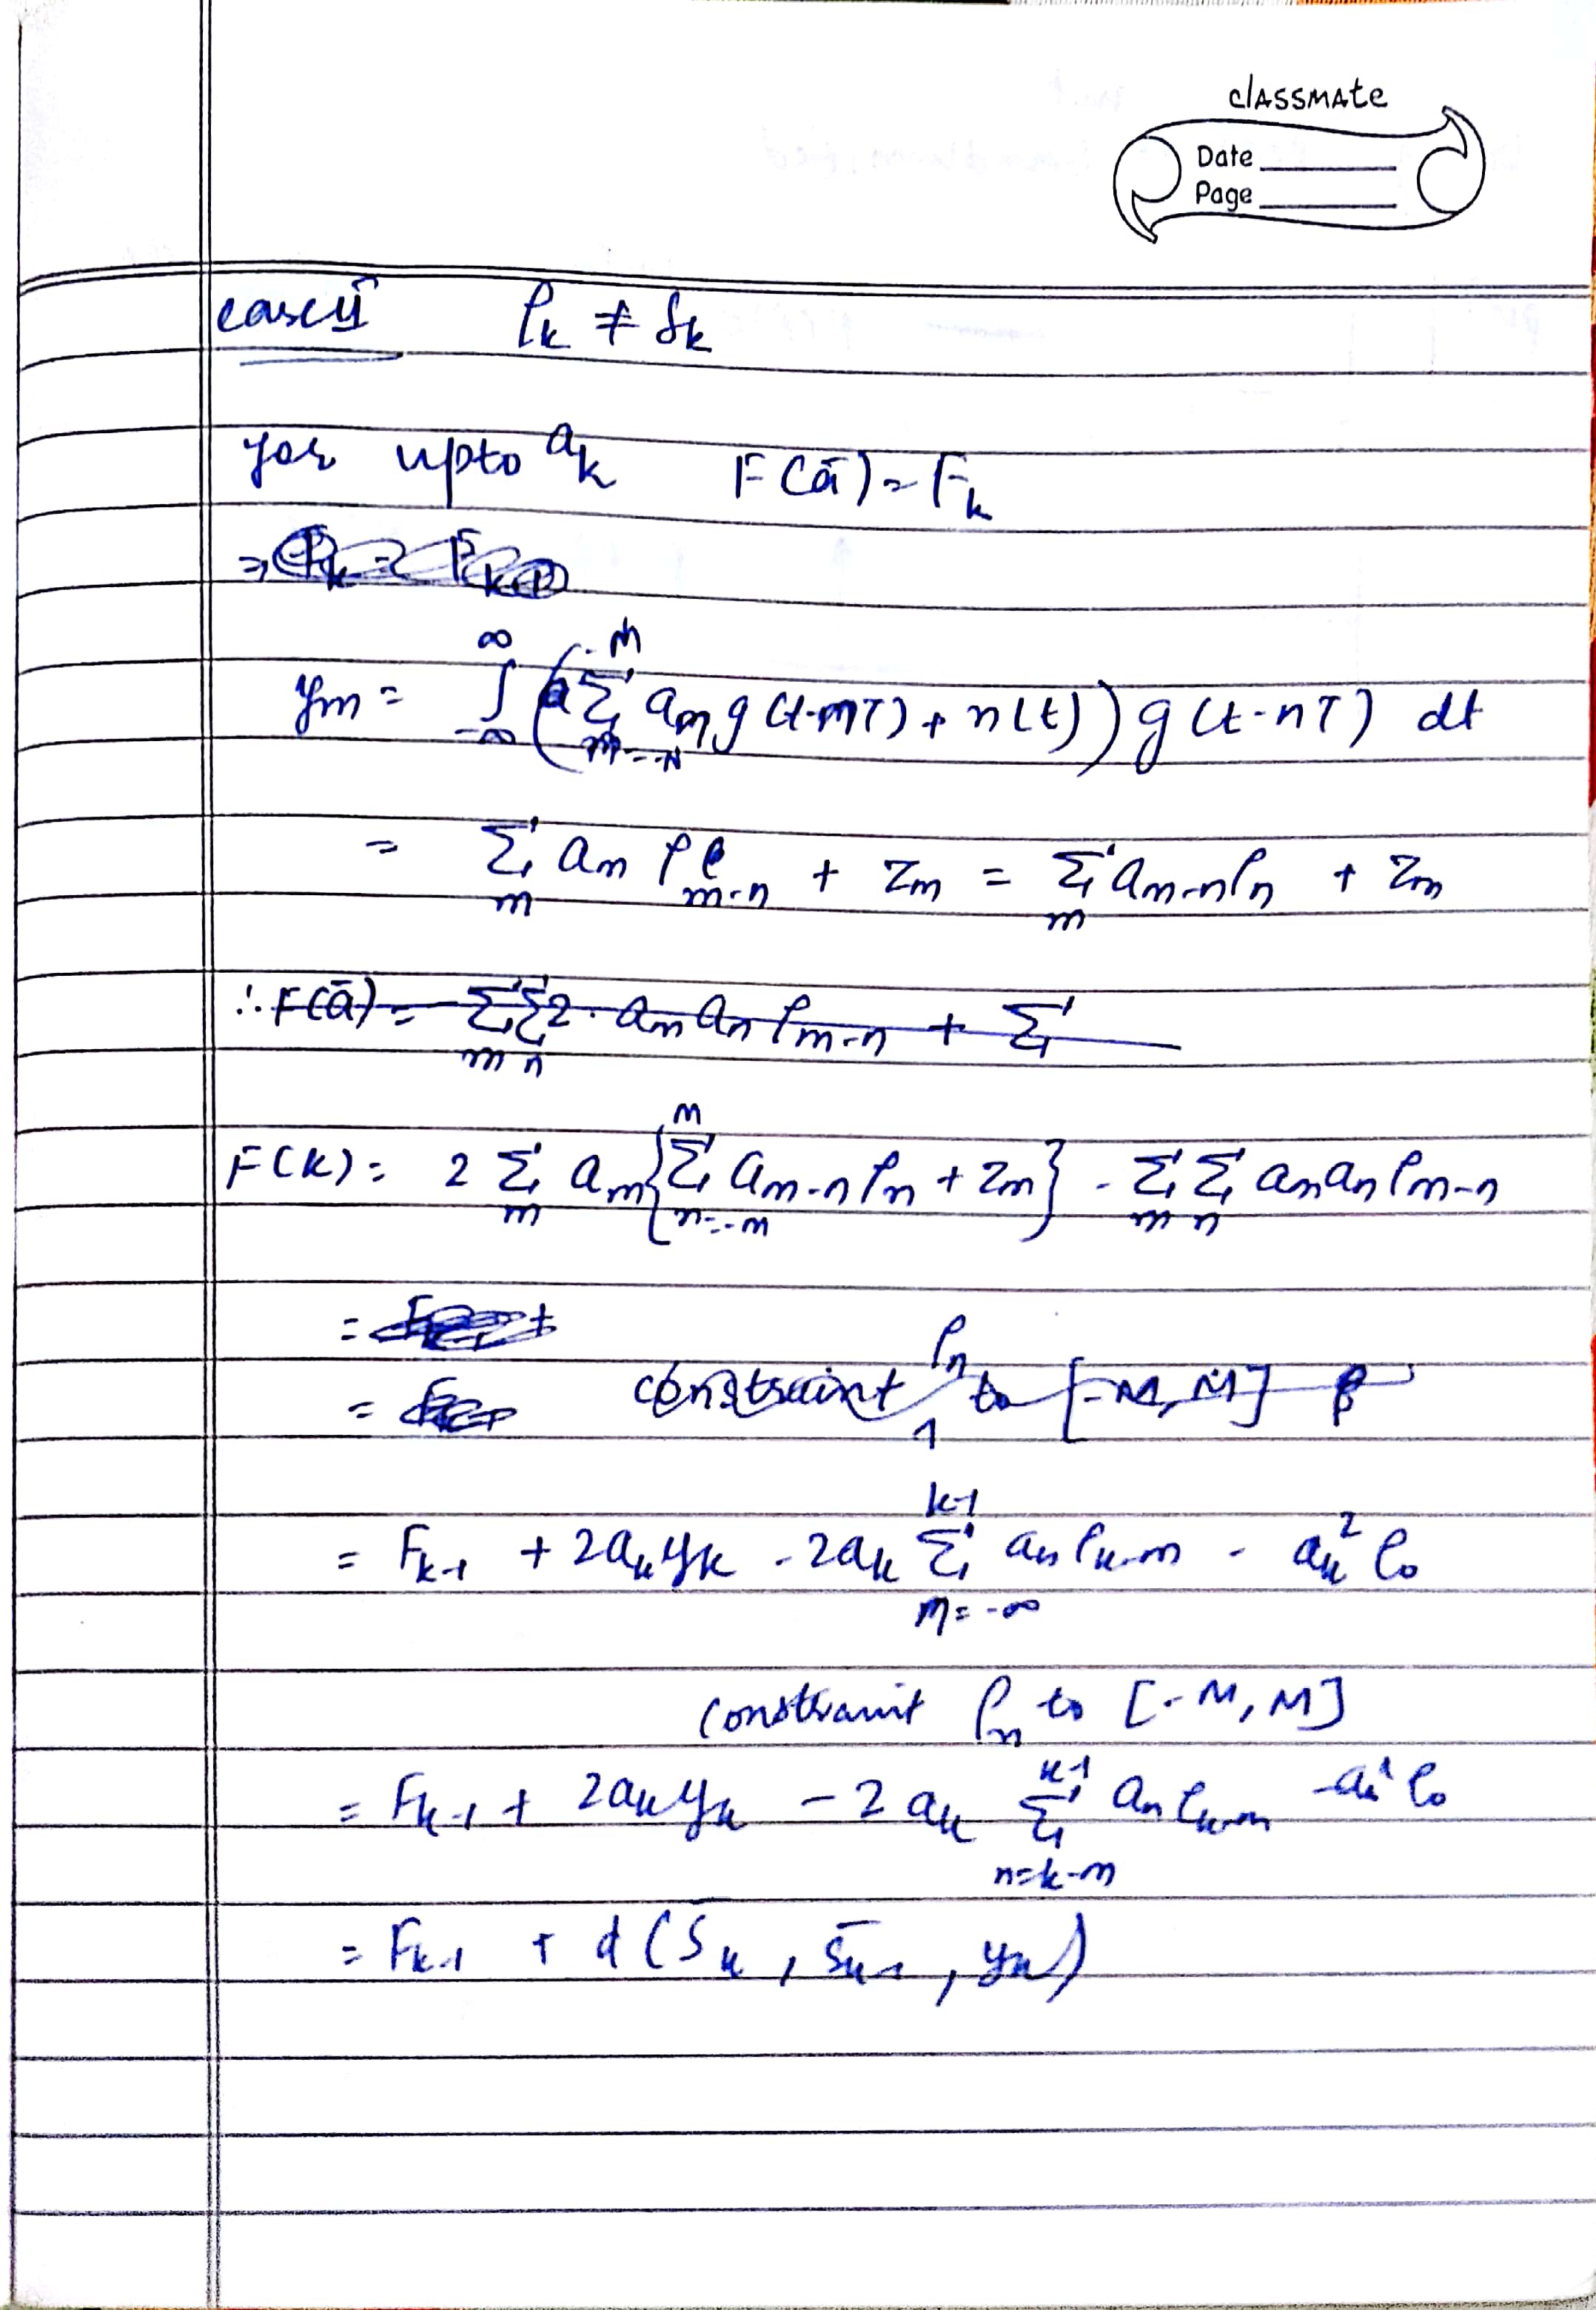 classmate
Date
Page
case ii ρk ≠ δk
for upto ak F(ā) = Fk
ym = ∫_{-∞}^{∞} (Σ_{m=-N}^{M} am g(t-mT) + n(t)) g(t-nT) dt
= Σ_m am ρ_{m-n} + zm = Σ_m a_{m-n} ρn + zm
∴ F(ā) = Σ_m Σ_n 2· am an ρ_{m-n} + Σ
F(k) = 2 Σ_m am {Σ_{n=-m}^{M} a_{m-n} ρn + zm} - Σ_m Σ_n am an ρ_{m-n}
=
= constraint ρn to [-M, M]
= F_{k-1} + 2ak yk - 2ak Σ_{m=-∞}^{k-1} am ρ_{k-m} - ak² ρ0
constraint ρn to [-M, M]
= F_{k-1} + 2ak yk - 2ak Σ_{n=k-m}^{k-1} am ρ_{k-m} - ak² ρ0
= F_{k-1} + d(S̄k, S̄_{k-1}, yk)